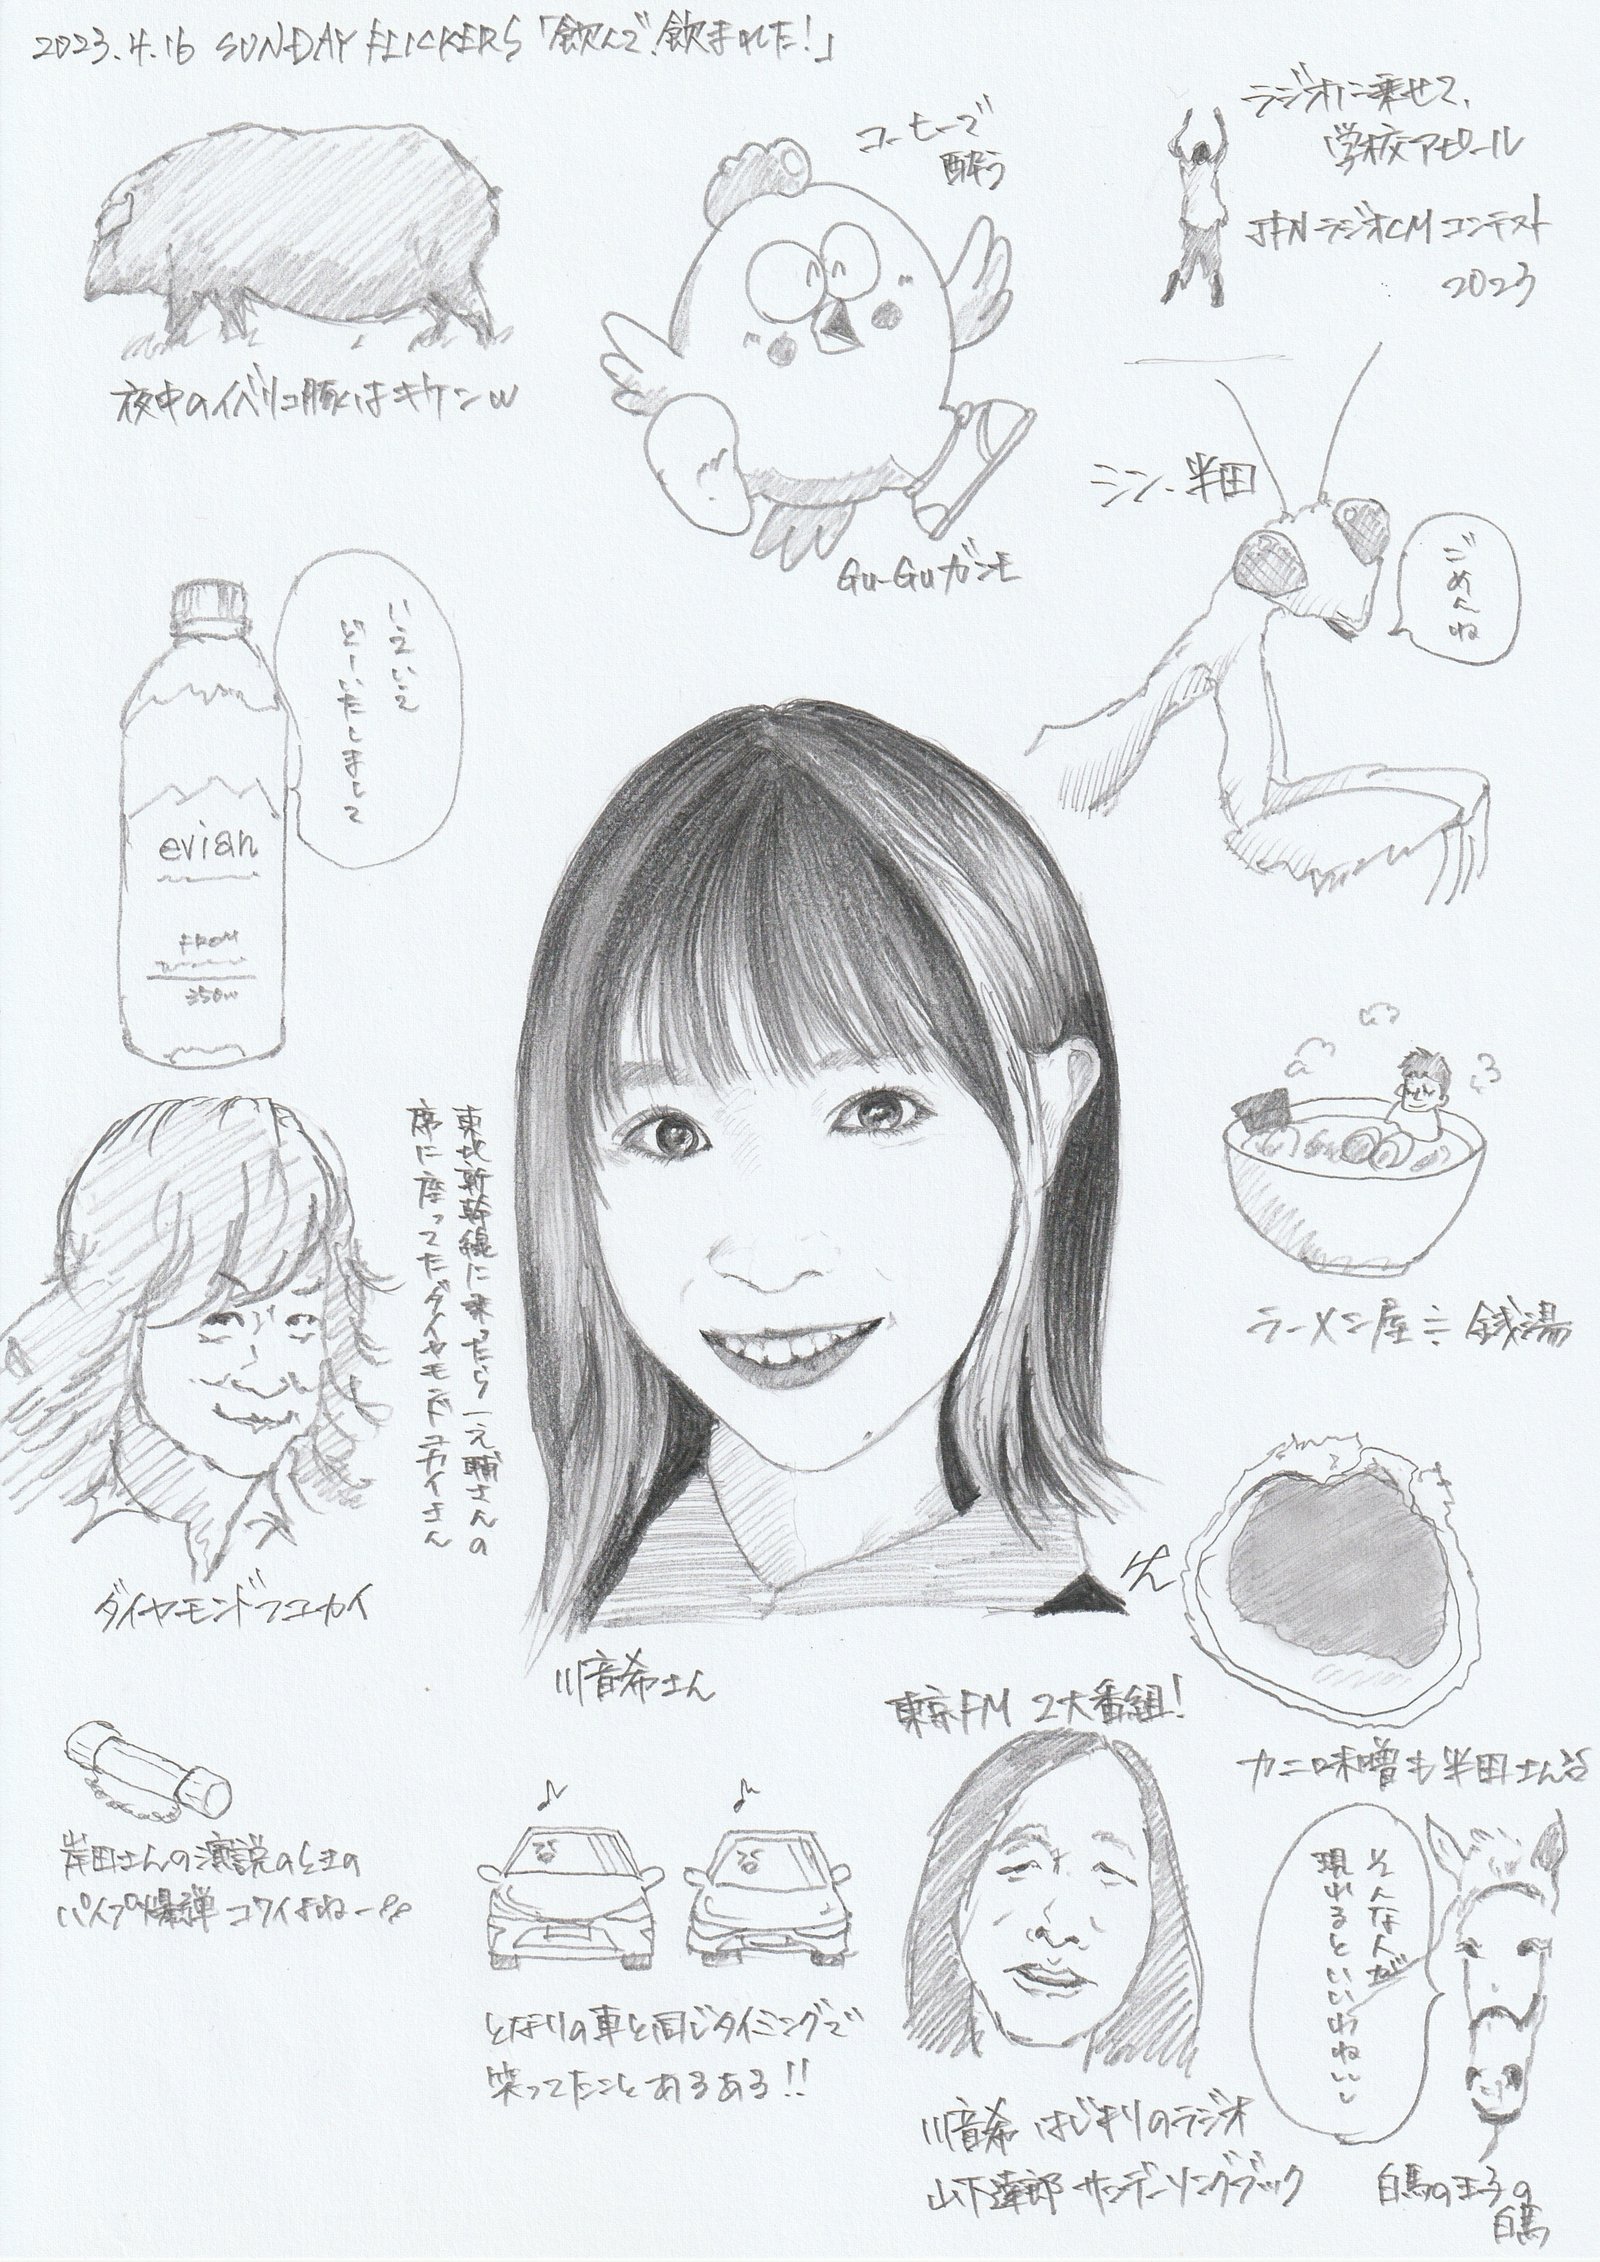 2023.4.16 SUNDAY FLICKERS「飲んで、飲まれた!」
コーヒーで
酔う
ラジオに乗せて、
学校アピール
JFNラジオCMコンテスト
2023
夜中のイベリコ豚はキケンw
Gu-Guガンモ
シン・半田
ごめんね
いえいえ
どーいたしまして
evian
FROM
東北新幹線に乗ったら一之輔さんの
席に座ってたダイヤモンドユカイさん
ダイヤモンド☆ユカイ
ラーメン屋≒銭湯
川音希さん
カニ味噌も半田さん
東京FM 2大番組!
岸田さんの演説のときの
パイプ爆弾コワイよねー
となりの車と同じタイミングで
笑ってたことあるある!!
川音希 はじまりのラジオ
山下達郎 サンデーソングブック
そんな人が
現れるといいわねぃ〜
白馬の王子の
白馬